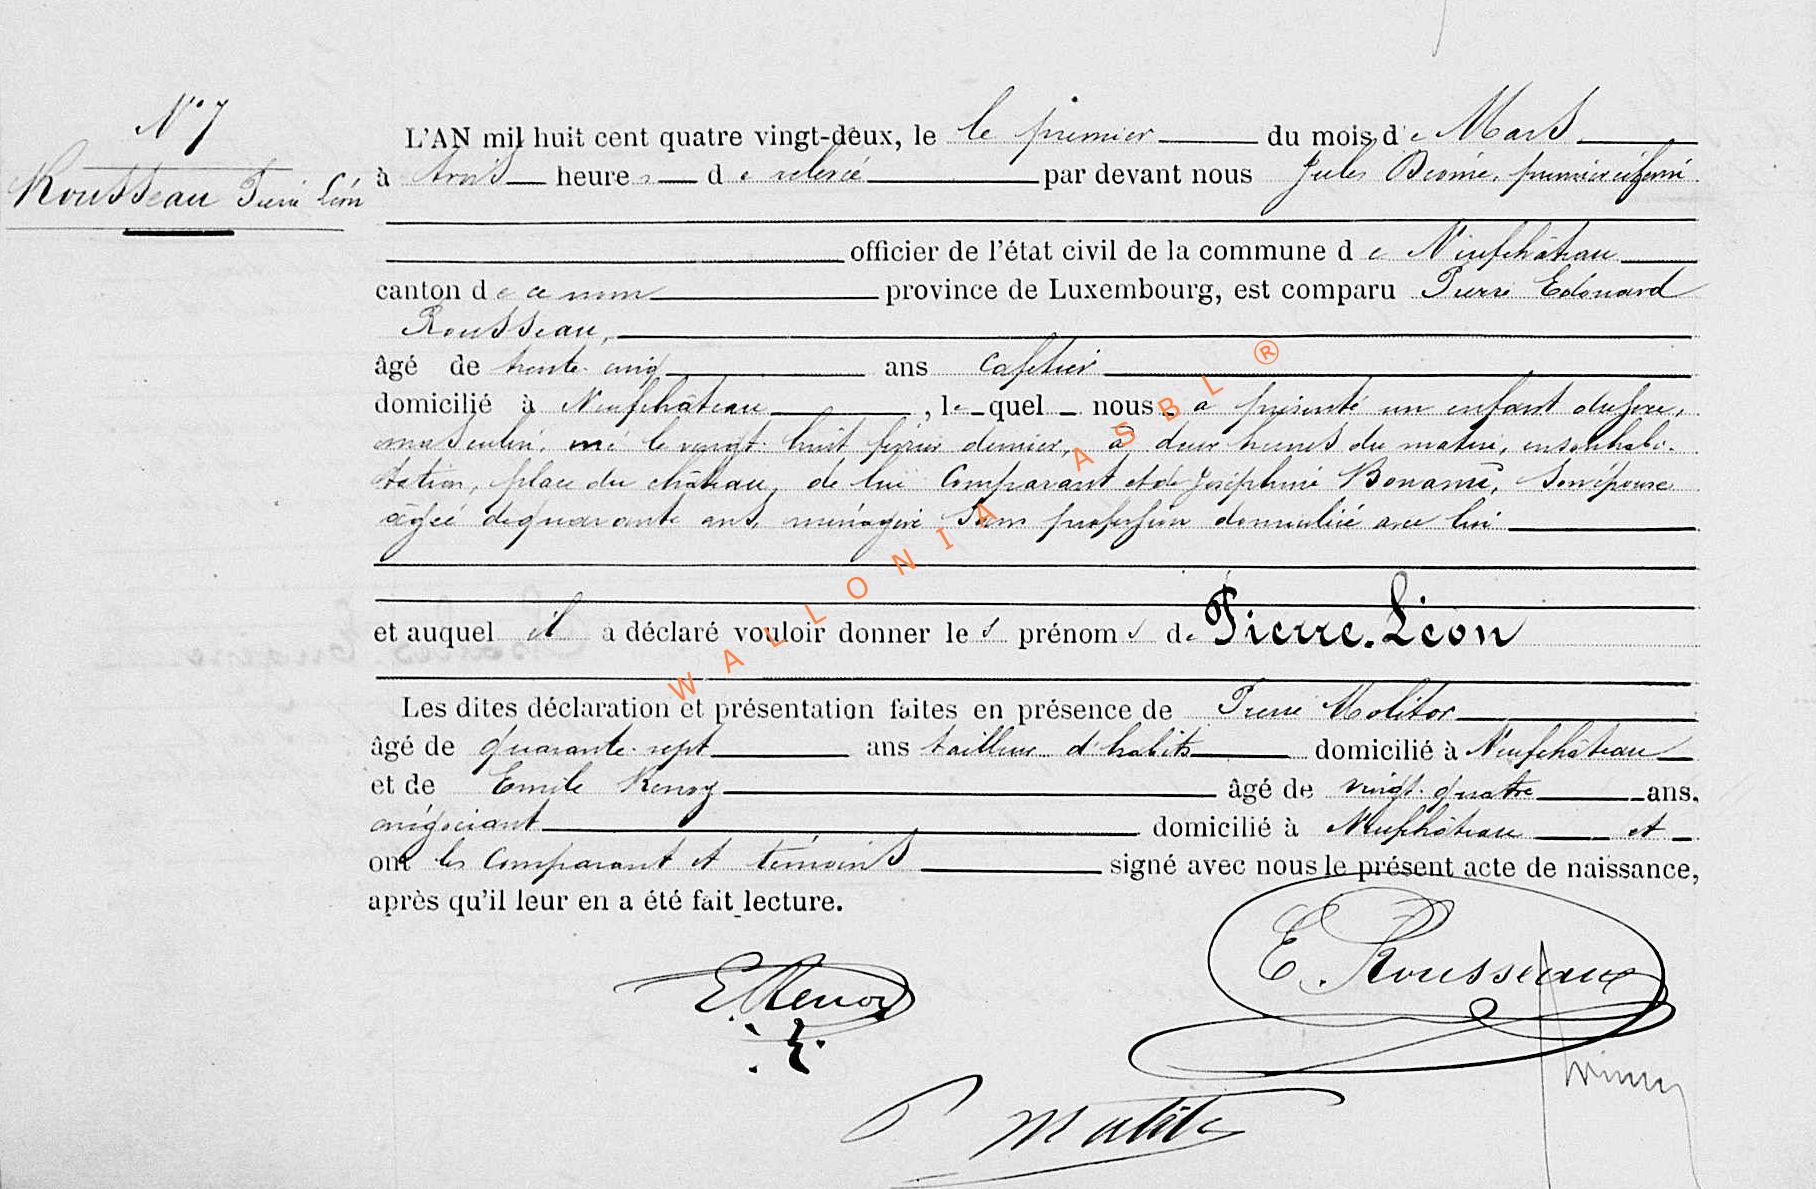 N° 7
Rousseau Pierre Léon
L'AN mil huit cent quatre vingt-deux, le le premier du mois de Mars
à trois heures de relevée par devant nous Jules premier échevin
officier de l'état civil de la commune de Neufchâteau
canton de ce nom province de Luxembourg, est comparu Pierre Edouard
Rousseau,
âgé de trente cinq ans cafetier
domicilié à Neufchâteau, lequel nous a présenté un enfant du sexe
masculin, né le vingt huit février dernier, à deux heures du matin, en son habi-
tation, place du château, de lui comparant et de Joséphine Boname, son épouse
âgée de quarante ans, ménagère sans profession domiciliée avec lui
et auquel il a déclaré vouloir donner les prénoms de Pierre-Léon
Les dites déclaration et présentation faites en présence de Pierre Molitor
âgé de quarante-sept ans tailleur d'habits domicilié à Neufchâteau
et de Emile Renoy âgé de vingt-quatre ans,
négociant domicilié à Neufchâteau et
ont les comparant et témoins signé avec nous le présent acte de naissance,
après qu'il leur en a été fait lecture.
E. Renoy
E. Rousseau
P Molitor
WALLONIA ASBL ®